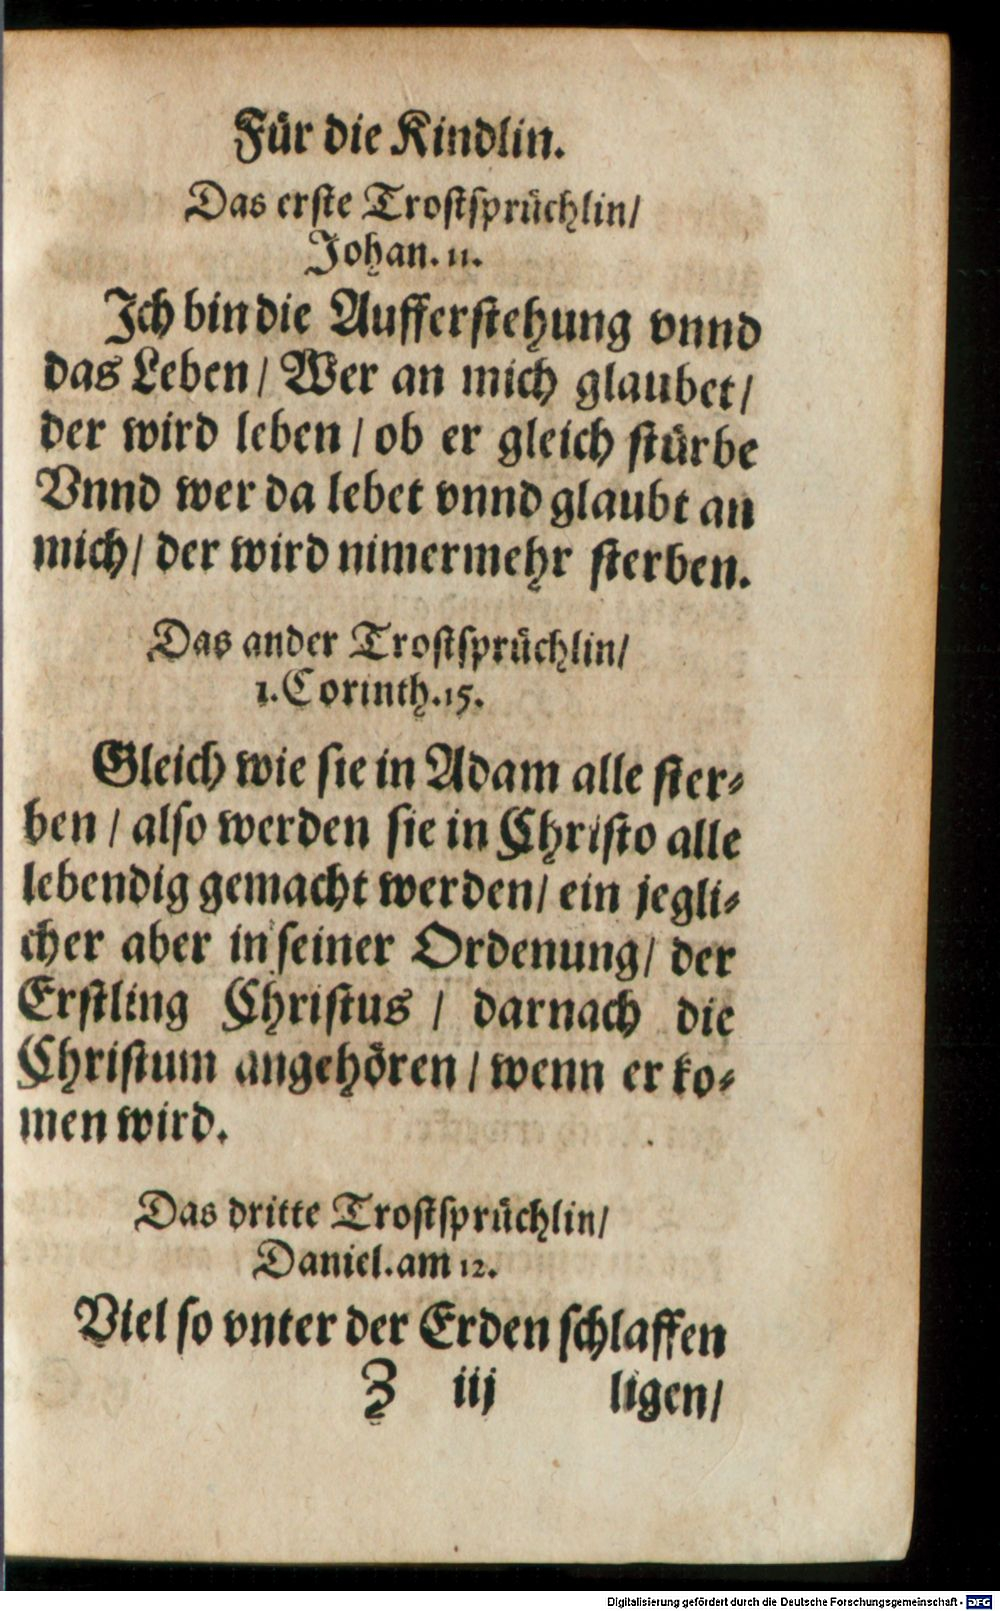 Für die Kindlin.
Das erste Trostsprüchlin/
Johan. 11.
Ich bin die Aufferstehung vnnd
das Leben / Wer an mich glaubet/
der wird leben / ob er gleich stürbe
Vnnd wer da lebet vnnd glaubt an
mich/ der wird nimermehr sterben.
Das ander Trostsprüchlin/
1. Corinth. 15.
Gleich wie sie in Adam alle ster-
ben / also werden sie in Christo alle
lebendig gemacht werden/ ein jegli-
cher aber in seiner Ordenung/ der
Erstling Christus / darnach die
Christum angehören / wenn er ko-
men wird.
Das dritte Trostsprüchlin/
Daniel. am 12.
Viel so vnter der Erden schlaffen
Z iij ligen/
Digitalisierung gefördert durch die Deutsche Forschungsgemeinschaft - DFG